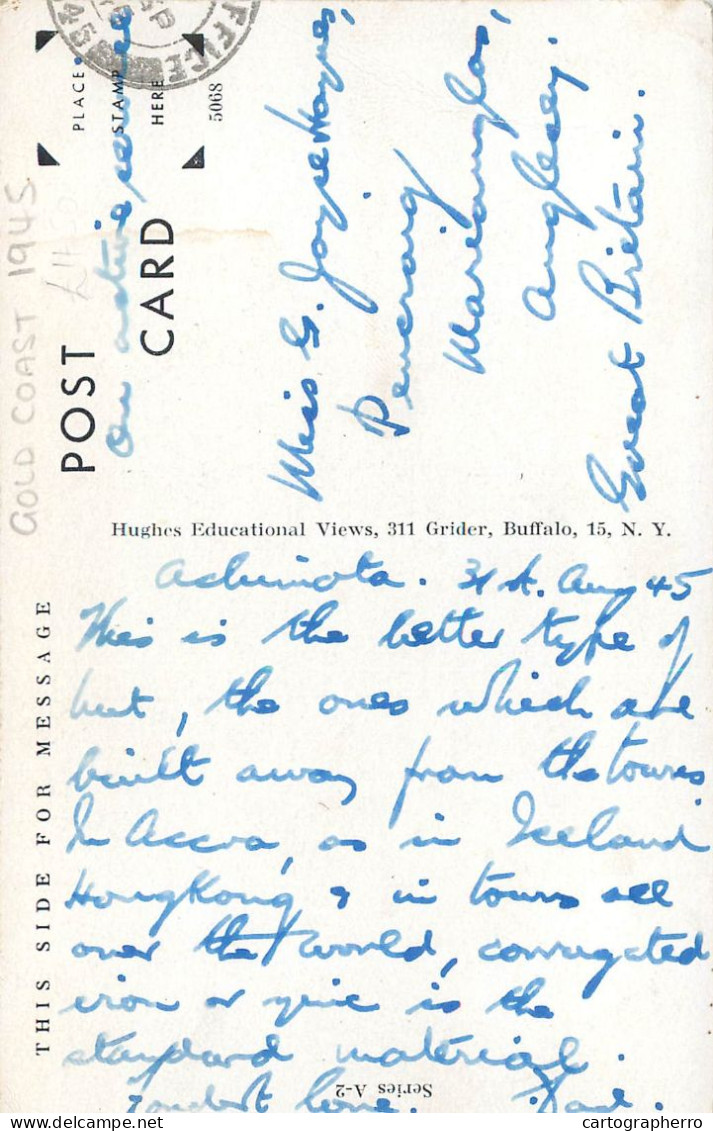 GOLD COAST 1945
POST CARD
PLACE
STAMP
HERE
5068
On active service
Miss G. Joyce Haynes,
Pencraig
Marianglas,
Anglesey.
Great Britain.
Hughes Educational Views, 311 Grider, Buffalo, 15, N. Y.
THIS SIDE FOR MESSAGE
Achimota. 31st. Aug 45
This is the better type of
hut, the ones which are
built away from the towns
In Accra, as in Iceland
HongKong & in towns all
over the world, corrugated
iron or zinc is the
standard material.
Fondest love. Dad.
Series A-2
cartographerro @ delcampe.net